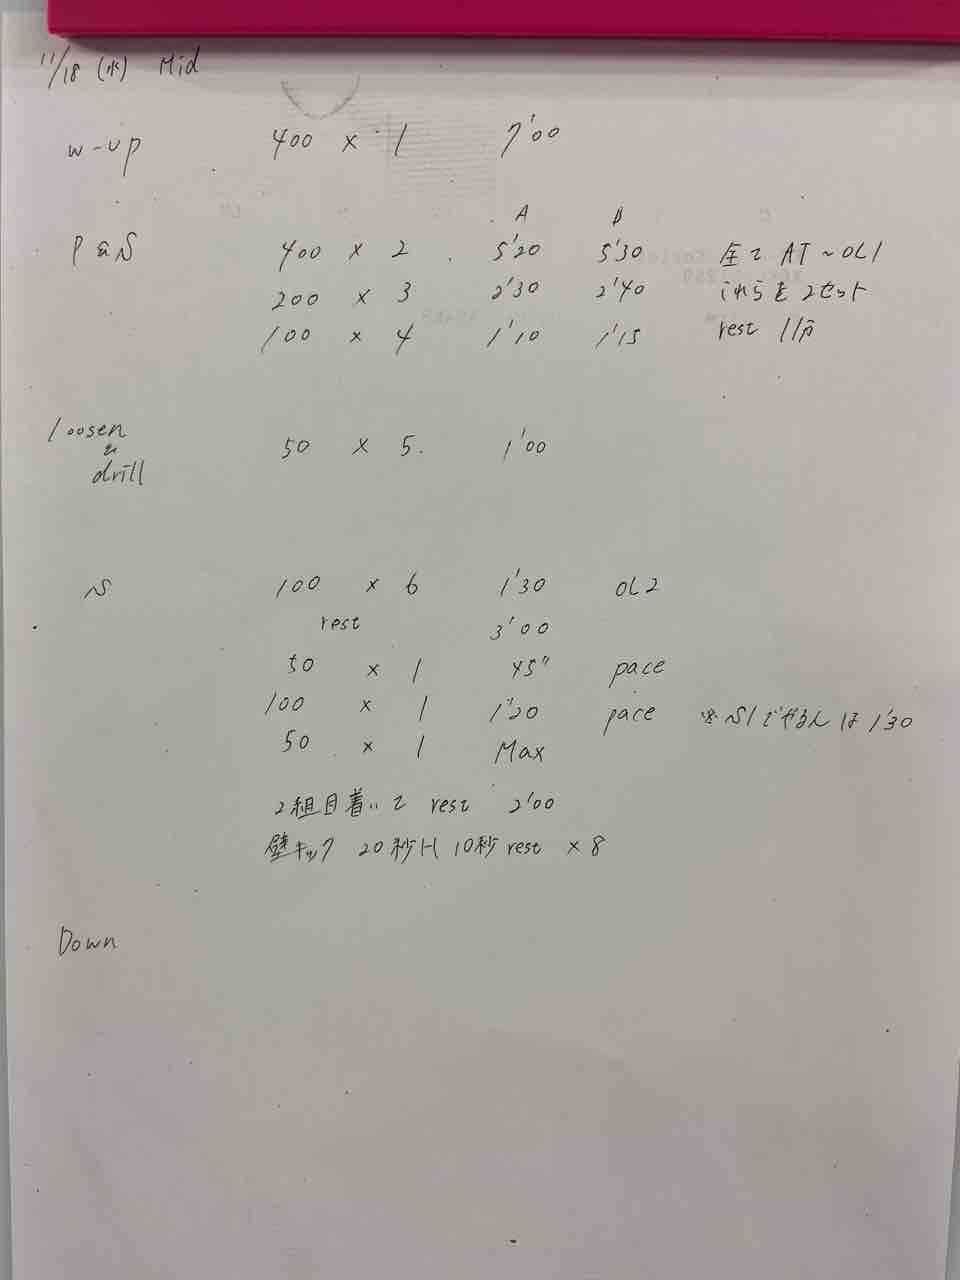 11/18 (水) Mid
w-up 400 × 1 7'00
A B
P&S 400 × 2 5'20 5'30 全て AT~OL1
200 × 3 2'30 2'40 これらを2セット
100 × 4 1'10 1'15 rest 1分
loosen
& 50 × 5. 1'00
drill
S 100 × 6 1'30 OL2
rest 3'00
50 × 1 45" pace
100 × 1 1'20 pace ※S1でやる人は1'30
50 × 1 Max
2組目着いて rest 2'00
壁キック 20秒H 10秒rest × 8
Down